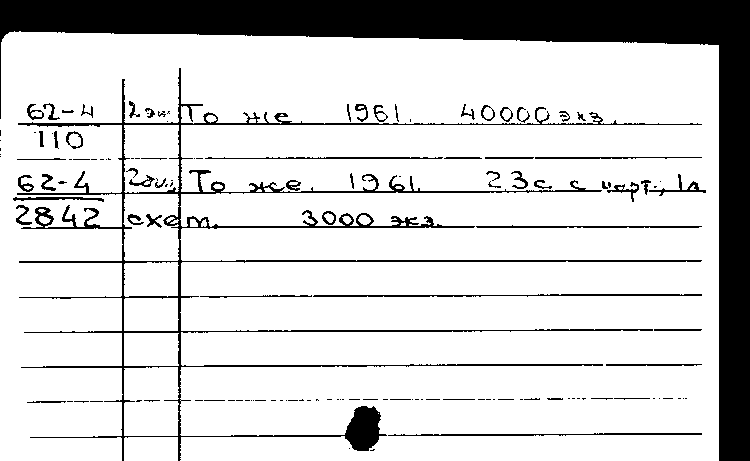 62-4 2экз. То же. 1961. 40000 экз.
110
62-4 2экз. То же. 1961. 23с с черт., 1л
2842 схем. 3000 экз.